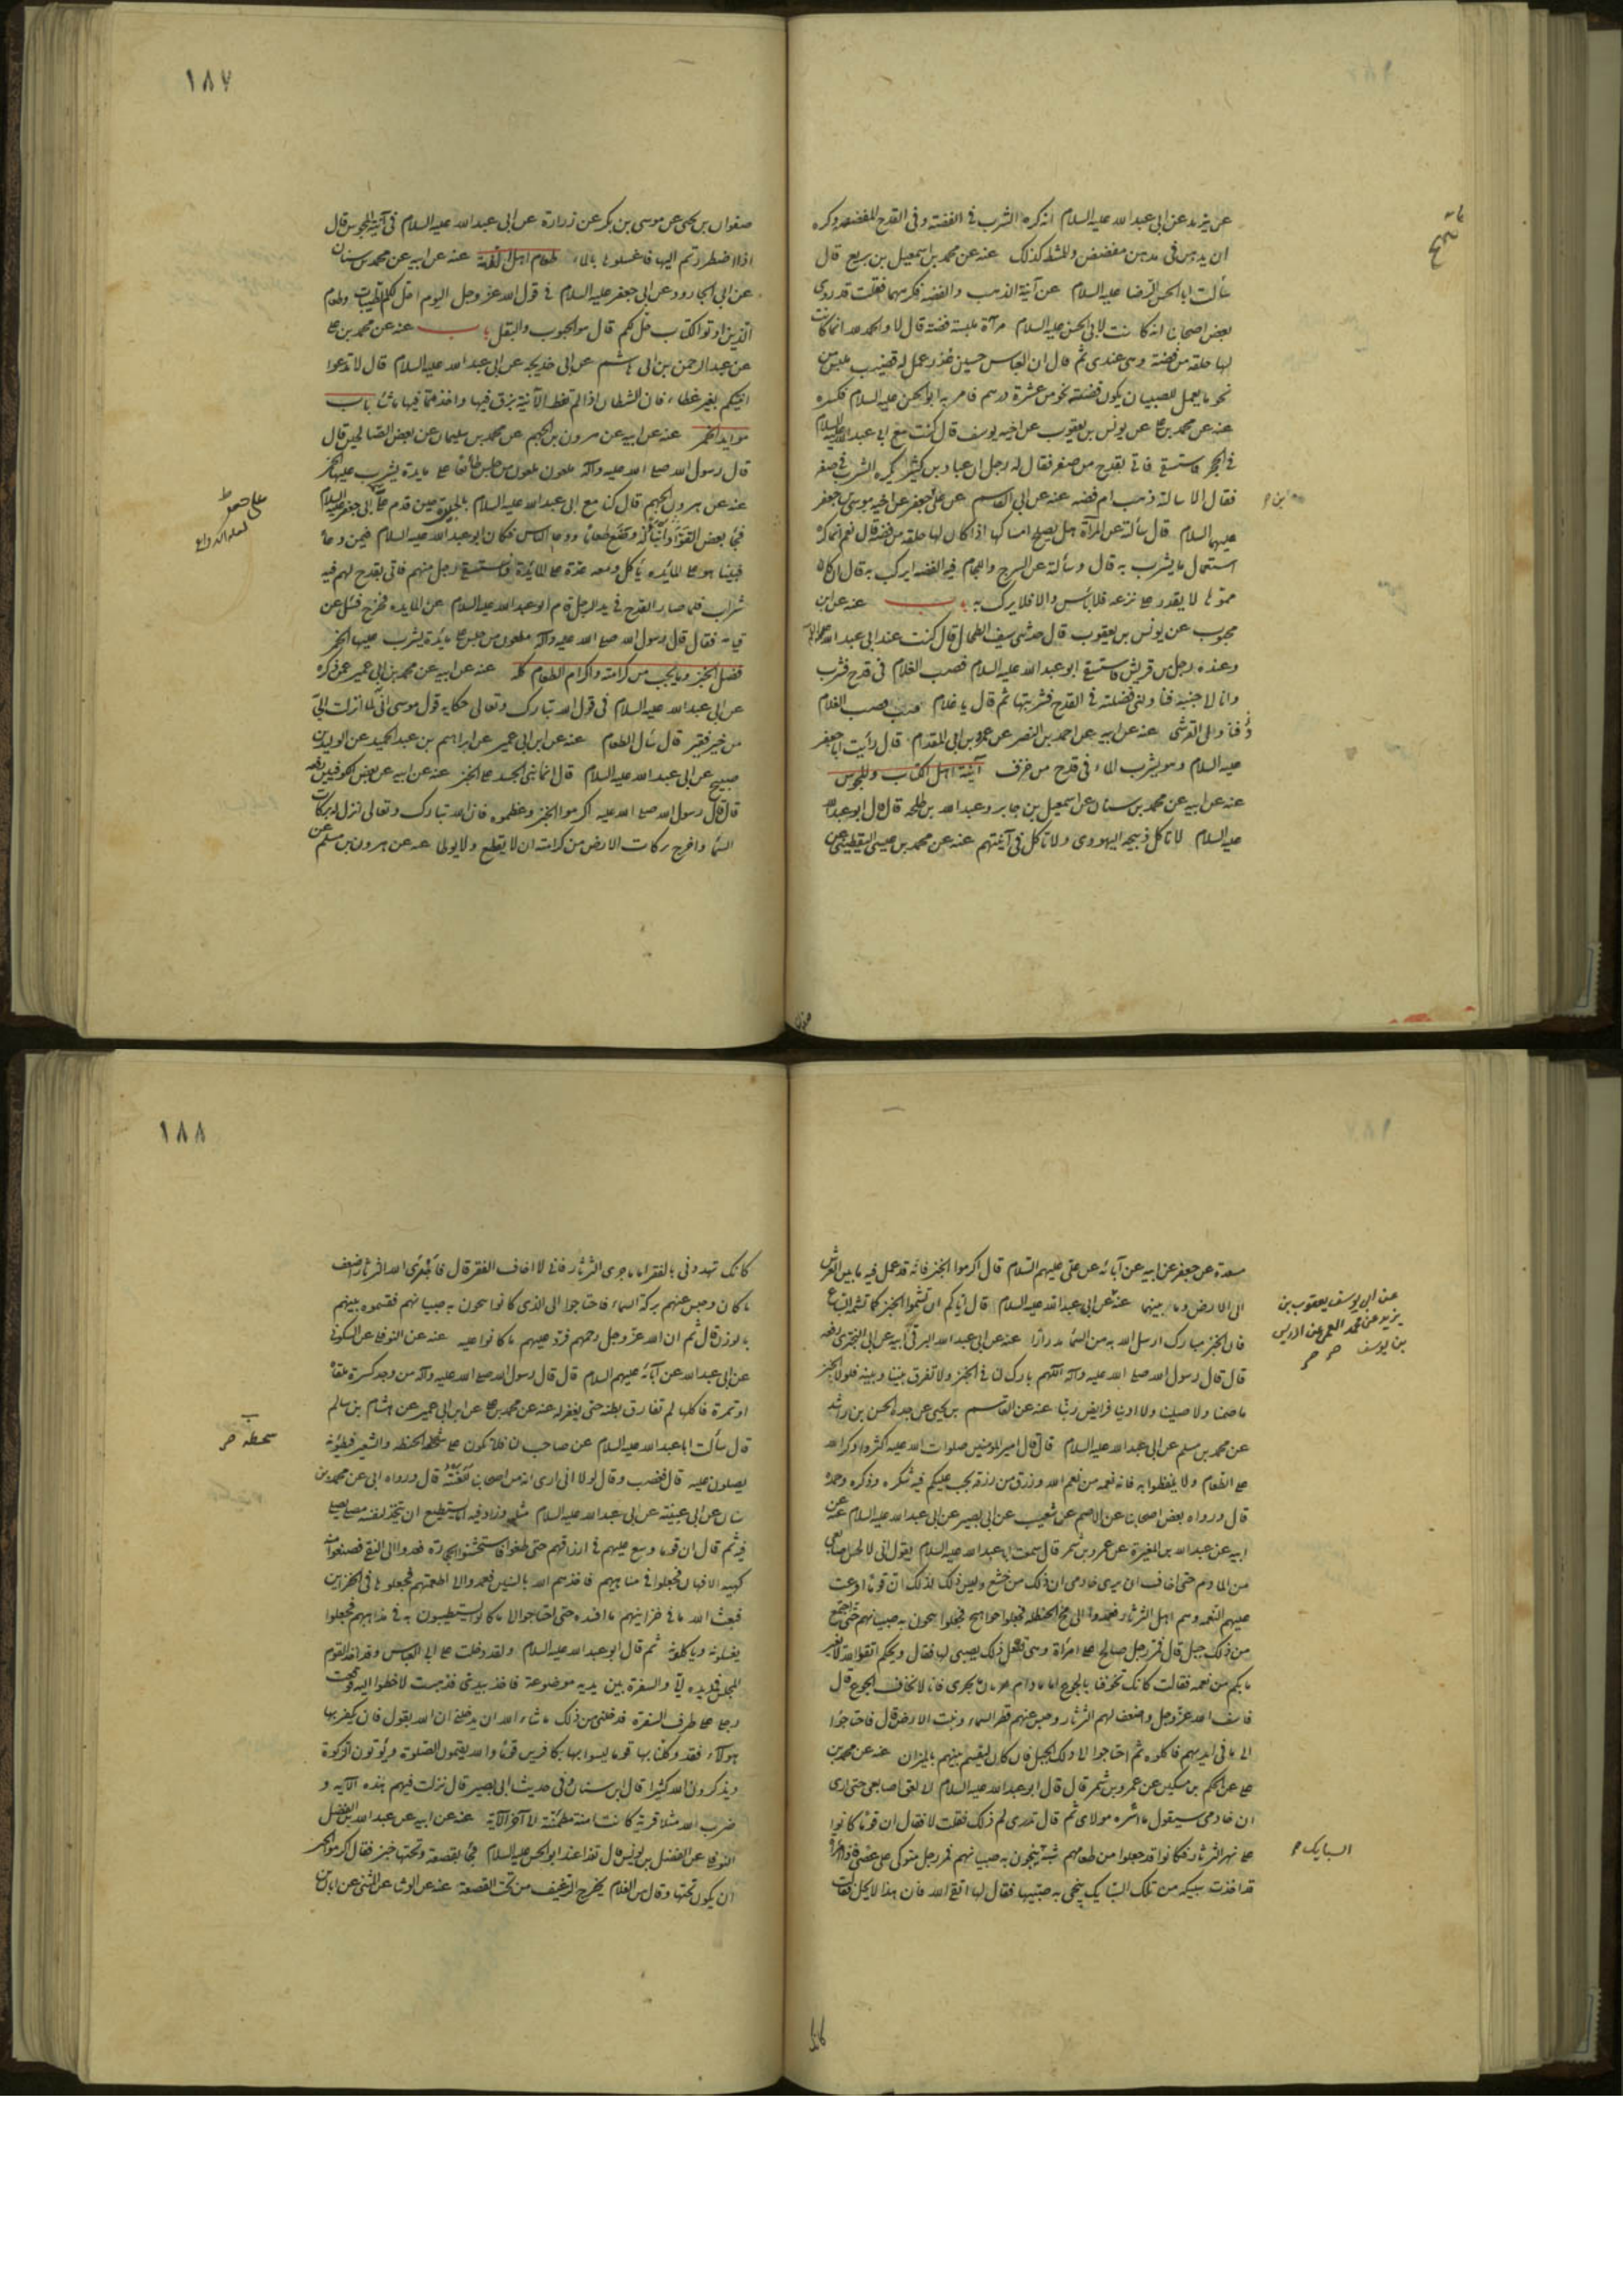 عن بريد عن ابى عبد الله عليه السلام انه كره الشرب في الفضة وفى القدح المفضضة وكره
ان يدهن فى مدهن مفضض والمشط كذلك عنه عن محمد بن اسمعيل بن بزيع قال
سألت ابا الحسن الرضا عليه السلام عن آنية الذهب والفضة فكرههما فقلت قد روى
بعض اصحابنا انه كانت لابى الحسن عليه السلام مرآة ملبسة فضة قال لا والحمد لله انما كانت
لها حلقة من فضة وهى عندى ثم قال ان العباس حين عذر عمل له قضيب ملبس من
نحو ما يعمل للصبيان يكون فضته نحو من عشرة درهم فامر به ابو الحسن عليه السلام فكسره
عنه عن محمد بن على عن يونس بن يعقوب عن اخيه يوسف قال كنت مع ابى عبد الله عليه السلام
في الحجر فاستسقى فاتى بقدح من صفر فقال له رجل ان عباد بن كثير يكره الشرب فى صفر
فقال الا سألته ذهب ام فضة عنه عن ابى القاسم عن على بن جعفر عن اخيه موسى بن جعفر
عليهما السلام قال سألته عن المرآة هل يصلح امساكها اذا كان لها حلقة من فضة قال نعم انما كره
استعمال ما يشرب به قال وسألته عن السرج واللجام فيه الفضة ايركب به قال ان كان
مموها لا يقدر على نزعه فلا بأس والا فلا يركب به باب عنه عن ابن
محبوب عن يونس بن يعقوب قال حدثنى سيف الطحان قال كنت عند ابى عبد الله عليه السلام
وعنده رجل من قريش فاستسقى ابو عبد الله عليه السلام فصب الغلام فى قدح فشرب
وانا لا جنبه فناولنى فضلته فى القدح فشربتها ثم قال يا غلام صب فصب الغلام
وناول القرشى عنه عن ابيه عن احمد بن النضر عن عمرو بن ابى المقدام قال رأيت ابا جعفر
عليه السلام وهو يشرب الماء فى قدح من خزف آنية اهل الكتاب والمجوس
عنه عن ابيه عن محمد بن سنان عن اسمعيل بن جابر وعبد الله بن طلحة قال قال ابو عبد الله
عليه السلام لا تأكل ذبيحة اليهودى ولا تأكل فى آنيتهم عنه عن محمد بن عيسى اليقطينى عن
صفوان
١٨٧
صفوان بن يحيى عن موسى بن بكر عن زرارة عن ابى عبد الله عليه السلام فى آنية المجوس قال
اذا اضطررتم اليها فاغسلوها بالماء طعام اهل الذمة عنه عن ابيه عن محمد بن سنان
عن ابى الجارود عن ابى جعفر عليه السلام فى قول الله عز وجل اليوم احل لكم الطيبات وطعام
الذين اوتوا الكتاب حل لكم قال هو الحبوب والبقل باب عنه عن محمد بن على
عن عبد الرحمن بن ابى هاشم عن ابى خديجه عن ابى عبد الله عليه السلام قال لا تدعوا
آنيتكم بغير غطاء فان الشيطان اذا لم تغط الآنية بزق فيها واخذ مما فيها ما شاء باب
موايد الخمر عنه عن ابيه عن هرون بن الجهم عن محمد بن سليمان عن بعض الصالحين قال
قال رسول الله صلى الله عليه وآله ملعون ملعون من جلس طائعا على مايدة يشرب عليها الخمر
عنه عن هرون بن الجهم قال كنا مع ابى عبد الله عليه السلام بالحيرة حين قدم على ابى جعفر
فختن بعض القواد ابنا له وصنع طعاما ودعا الناس فكان ابو عبد الله عليه السلام فيمن دعى
فبينا هو على المايده يأكل ومعه عدة على المائدة فاستسقى رجل منهم فاتى بقدح لهم فيه
شراب فلما صار القدح فى يد الرجل قام ابو عبد الله عليه السلام عن المايده فخرج فسئل عن
قيامه فقال قال رسول الله صلى الله عليه وآله ملعون من جلس على مائدة يشرب عليها الخمر
فضل الخبز وما يجب من كرامته واكرام الطعام كله عنه عن ابيه عن محمد بن ابى عمير عمن ذكره
عن ابى عبد الله عليه السلام فى قول الله تبارك وتعالى حكاية قول موسى انى لما انزلت الى
من خير فقير قال سأل الطعام عنه عن ابن ابى عمير عن ابراهيم بن عبد الحميد عن الوليد بن
صبيح عن ابى عبد الله عليه السلام قال انما بنى الجسد على الخبز عنه عن ابيه عن بعض الكوفيين رفعه
قال قال رسول الله صلى الله عليه اكرموا الخبز وعظموه فان الله تبارك وتعالى انزل له بركات
السماء واخرج بركات الارض من كرامته ان لا يقطع ولا يوطى عنه عن هرون بن مسلم عن
١٨٨
مسعدة عن جعفر عن ابيه عن آبائه عن على عليهم السلام قال اكرموا الخبز فانه قد عمل فيه ما بين العرش
الى الارض وما بينهما عنه عن ابى عبد الله عليه السلام قال اياكم ان تشموا الخبز كما تشمه السباع
فان الخبز مبارك ارسل الله به من السماء مدرارا عنه عن ابى عبد الله البرقى ابيه عن ابى البخترى رفعه
قال قال رسول الله صلى الله عليه وآله اللهم بارك لنا فى الخبز ولا تفرق بيننا وبينه فلولا الخبز
ما صمنا ولا صلينا ولا ادينا فرايض ربنا عنه عن القاسم بن يحيى عن جده الحسن بن راشد
عن محمد بن مسلم عن ابى عبد الله عليه السلام قال قال امير المومنين صلوات الله عليه اكثروا ذكر الله
على الطعام ولا تلفظوا به فانه نعمه من نعم الله ورزق من رزقه يجب عليكم فيه شكره وذكره وحمده
قال ورواه بعض اصحابنا عن الاصم عن شعيب عن ابى بصير عن ابى عبد الله عليه السلام عنه عن
ابيه عن عبد الله بن المغيرة عن عمرو بن شمر قال سمعت ابا عبد الله عليه السلام يقول انى لالحس اصابعى
من المادم حتى اخاف ان يرى خادمى ان ذلك من جشع وليس ذلك لذلك ان قوما افرغت
عليهم النعمه وهم اهل الثرثار فعمدوا الى مخ الحنطه فجعلوا خبزا هجا فجعلوا ينجون به صبيانهم حتى اجتمع
من ذلك جبل قال فمر رجل صالح على امرأة وهى تفعل ذلك بصبى لها فقال ويحكم اتقوا الله لا يغير
ما بكم من نعمه فقالت كانك تخوفنا بالجوع اما ما دام ثرثارنا يجرى فانا لا نخاف الجوع قال
فاسف الله عز وجل واضعف لهم الثرثار وحبس عنهم قطر السماء ونبت الارض قال فاحتاجوا
الى ما فى ايديهم فاكلوه ثم احتاجوا الى ذلك الجبل فان كان ليقسم بينهم بالميزان عنه عن محمد بن
على عن الحكم بن مسكين عن عمرو بن شمر قال قال ابو عبد الله عليه السلام انى لالعق اصابعى حتى ارى
ان خادمى سيقول ما اشره مولاى ثم قال تدرى لم ذلك فقلت لا فقال ان قوما كانوا
على نهر الثرثار فكانوا قد جعلوا من طعامهم شبه السبايك ينجون به صبيانهم فمر رجل متوكى على عصى فاذا امرأة
قد اخذت سبيكه من تلك السبايك ينجى به صبيها فقال لها اتقى الله فان هذا لا يحل فقالت
كانك
عن ابى يوسف يعقوب بن
يزيد عن محمد القمى عن ادريس
بن يوسف
السبايك
كانك تهددنى بالفقر اما ما جرى الثرثار فانى لا اخاف الفقر قال فاجرى الله الثرثار اضعف
ما كان وحبس عنهم بركة السماء فاحتاجوا الى الذى كانوا ينجون به صبيانهم فقسموه بينهم
بالوزن قال ثم ان الله عز وجل رحمهم فرد عليهم ما كانوا عليه عنه عن النوفلى عن السكونى
عن ابى عبد الله عن آبائه عليهم السلام قال قال رسول الله صلى الله عليه وآله من وجد كسرة ملقاة
او تمرة فاكلها لم تفارق بطنه حتى يغفر له عنه عن محمد بن على عن ابن ابى عمير عن هشام بن سالم
قال سألت ابا عبد الله عليه السلام عن صاحب لنا فلاح يكون على سطحه الحنطه والشعير فيطؤنه
يصلون عليه قال فغضب وقال لولا انى ارى انه من اصحابنا للعنته قال ورواه ابى عن محمد بن
سنان عن ابى عيينة عن ابى عبد الله عليه السلام مثله وزاد فيه اما يستطيع ان يتخذ لنفسه مصلى يصلى
فيه ثم قال ان قوما وسع عليهم فى ارزاقهم حتى طغوا فاستخشنوا الحجارة فعمدوا الى النقى فصنعوا منه
كهيئة الافهار فجعلوا فى مذاهبهم فاخذهم الله بالسنين فعمدوا الى اطعمتهم فجعلوها فى الخزاين
فبعث الله على ما فى خزاينهم ما افسده حتى احتاجوا الى ما كانوا يستطيبون به فى مذاهبهم فجعلوا
يغسلونه وياكلونه ثم قال ابو عبد الله عليه السلام ولقد دخلت على ابى العباس وقد اخذ القوم
المجلس فمد يده الى والسفرة بين يديه موضوعة فاخذ بيدى فذهبت لاخطوا اليه فوقعت
رجلى على طرف السفرة فدخلنى من ذلك ما شاء الله ان يدخلنى ان الله يقول فان يكفر بها
هولاء فقد وكلنا بها قوما ليسوا بها بكافرين قوما والله يقيمون الصلوة ويؤتون الزكوة
ويذكرون الله كثيرا قال ابن سنان وفى حديث ابى بصير قال نزلت فيهم هذه الآية و
ضرب الله مثلا قرية كانت امنة مطمئنة الى آخر الآية عنه عن ابيه عن عبد الله بن الفضل
النوفلى عن الفضل بن يونس قال تغدا عندى ابو الحسن عليه السلام فجئ بقصعة وتحتها خبز فقال اكرموا الخبز
ان يكون تحتها وقال مر الغلام يخرج الرغيف من تحت القصعة عنه عن الوشا عن المثنى عن ابان بن